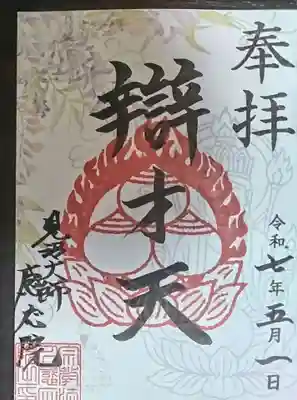 奉拝
辯才天
令和七年五月一日
見沼大師
院